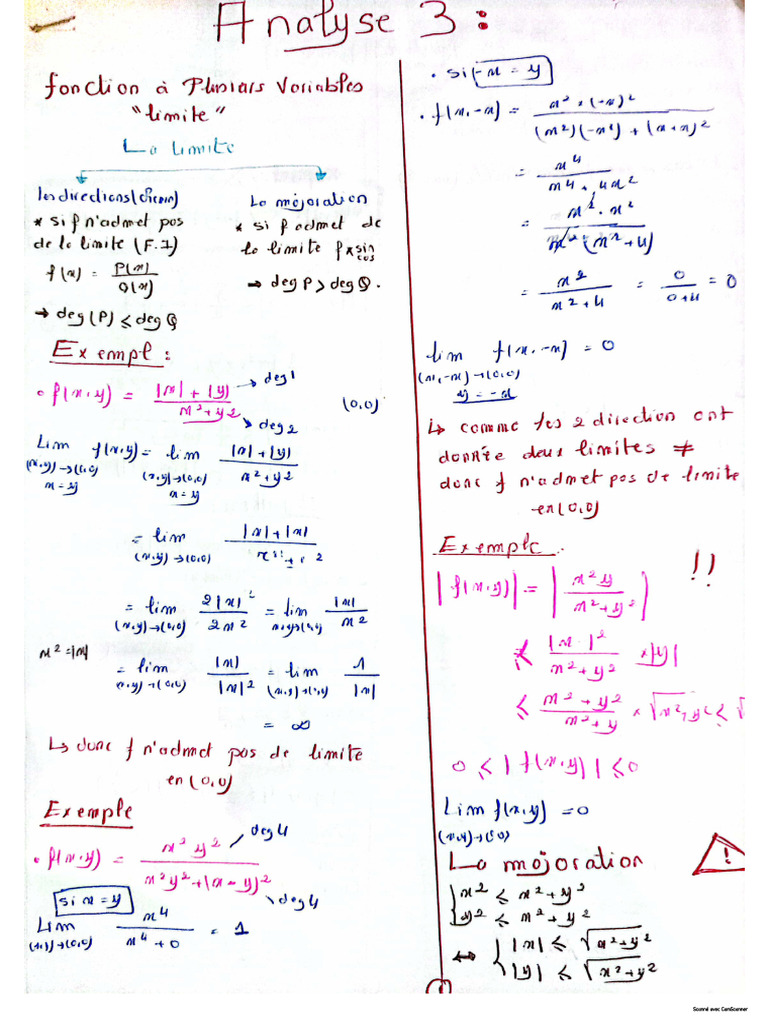 Analyse 3 :
fonction à Plusiars Variables
"limite"
La limite
les directions (chemin)
* si f n'admet pas
de la limite (F.I)
f(x) = P(x)/Q(x)
→ deg(P) ≤ deg Q
La majoration
* si f admet de
la limite f x sin cos
→ deg P > deg Q.
Exempl :
• f(x,y) = (|x| + |y|)/(x²+y²) → deg 1 → deg 2 (0,0)
Lim (x,y)→(0,0) x=y f(x,y) = lim (x,y)→(0,0) x=y (|x|+|y|)/(x²+y²)
= lim (x,y)→(0,0) |x|+|x|
= lim (x,y)→(0,0) 2|x|/2x² = lim (x,y)→(0,0) |x|/x²
x²=|x| = lim (x,y)→(0,0) |x|/|x|² = lim (x,y)→(0,0) 1/|x|
= ∞
↳ donc f n'admet pas de limite
en (0,0)
Exemple
• f(x,y) = x²y²/(x²y²+(x-y)²) deg 4 deg 4
si x=y
Lim (x,y)→(0,0) x⁴/(x⁴+0) = 1
• si -x = y
• f(x,-x) = x²×(-x)²/((x²)(-x²)+(x+x)²)
= x⁴/(x⁴+4x²)
= x²·x²/(x²(x²+4))
= x²/(x²+4) = 0/(0+4) = 0
lim (x,-x)→(0,0) y=-x f(x,-x) = 0
↳ comme les 2 direction ont
donnée deux limites ≠
donc f n'admet pas de limite
en (0,0)
Exemple !!
|f(x,y)| = |x²y/(x²+y²)|
≤ |x|²/(x²+y²) × |y|
≤ (x²+y²)/(x²+y) × √x²+y² ≤ √
0 ≤ |f(x,y)| ≤ 0
Lim f(x,y) = 0
(x,y)→(0,0)
La majoration !
{ x² ≤ x²+y²
y² ≤ x²+y²
⇔ { |x| ≤ √x²+y²
|y| ≤ √x²+y²
1
Scanné avec CamScanner